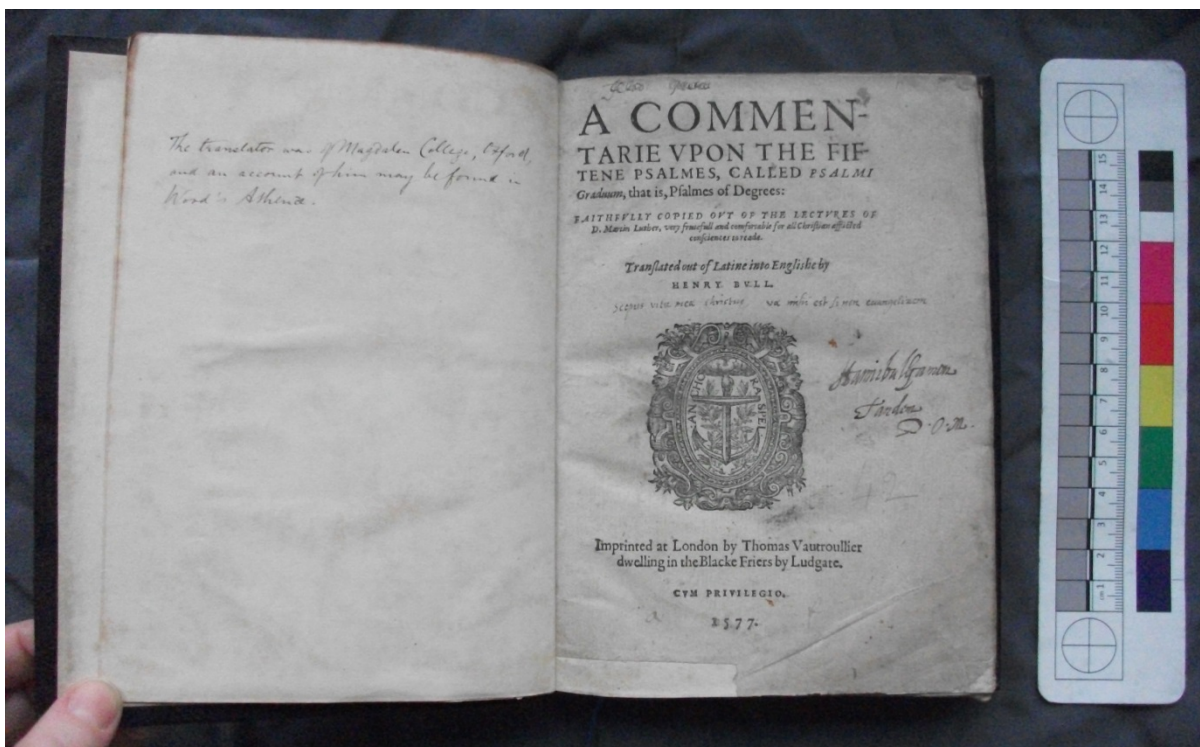 The translator was of Magdalen College, Oxford,
and an account of him may be found in
Wood's Athenæ.
A COMMEN-
TARIE VPON THE FIF-
TENE PSALMES, CALLED PSALMI
Graduum, that is, Psalmes of Degrees:
FAITHFVLLY COPIED OVT OF THE LECTVRES OF
D. Martin Luther, very frutefull and comfortable for all Christian afflicted
consciences to reade.
Translated out of Latine into Englishe by
HENRY BVLL.
scopus vitæ meæ christus væ mihi est si non euangelizem
ANCHORA SPEI
Hanibal Gamon
Tandem
D. O. M.
42
Imprinted at London by Thomas Vautroullier
dwelling in the Blacke Friers by Ludgate.
CVM PRIVILEGIO.
1577.
15
14
13
12
11
10
9
8
7
6
5
4
3
2
cm 1